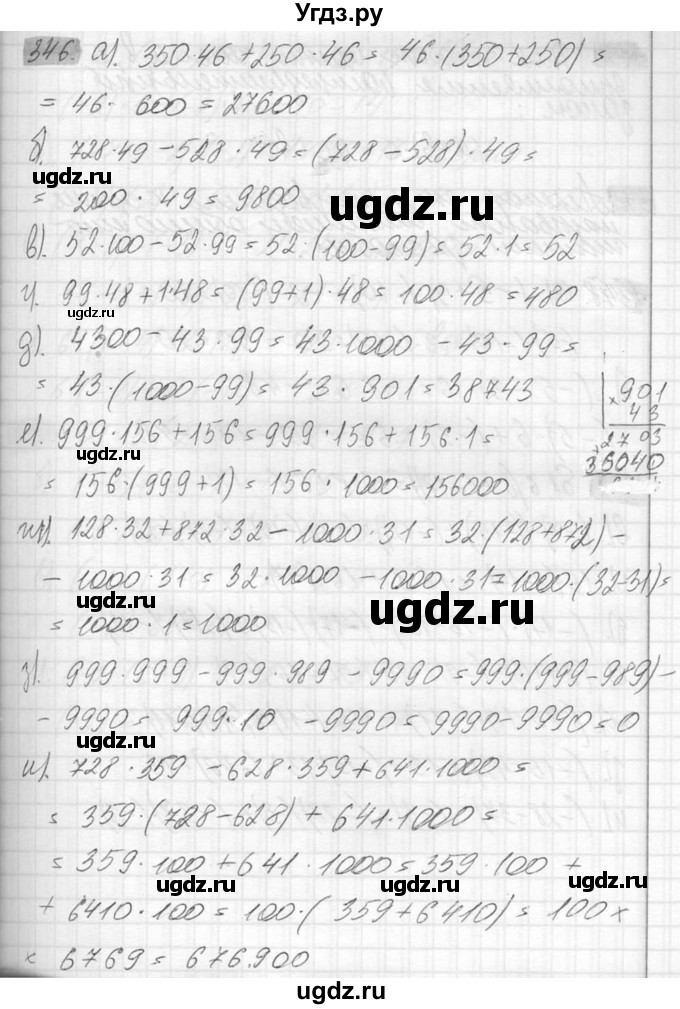 Угдз.ру
346. а). 350·46+250·46= 46·(350+250)=
= 46· 600 = 27600
б). 728·49-528·49=(728-528)·49=
gdz.ru
= 200 · 49 = 9800
ugdz.ru
в). 52·100-52·99=52·(100-99)=52·1=52
г). 99·48+1·48=(99+1)·48=100·48=480
ugdz.ru
д). 4300-43·99=43·1000-43·99=
= 43·(1000-99)= 43·901=38743
×901
43
е). 999·156+156=999·156+156·1=
2703
ugdz.ru
36040
= 156·(999+1)=156·1000=156000
ж). 128·32+872·32-1000·31=32·(128+872)-
- 1000·31=32·1000-1000·31=1000·(32-31)=
ugdz.ru
ugdz.ru
= 1000·1=1000
з). 999·999-999·989-9990=999·(999-989)-
- 9990= 999·10 -9990=9990-9990=0
ugdz.ru
и). 728·359-628·359+641·1000=
= 359·(728-628)+641·1000=
= 359·100+641·1000=359·100+
ugdz.ru
ugdz.ru
+ 6410·100=100·(359+6410)=100×
× 6769=676.900
ugdz.ru